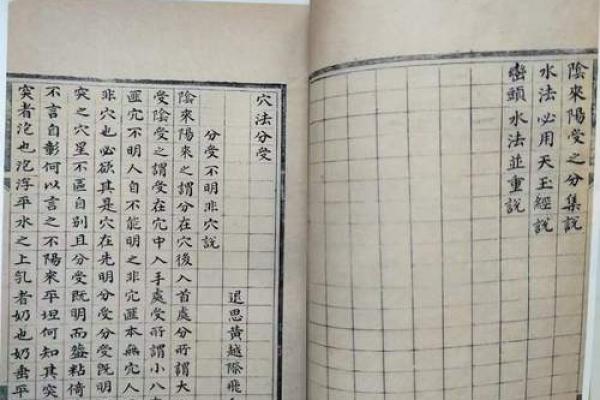 陰來陽受之分集說
水法必用天玉經說
巒頭水法並重說
穴法分受
分受不明非穴說
退思黃越際飛
陰來陽來之謂分在穴後入首處分所謂大
受陰受之謂受在穴中入手處受所謂小八
匪穴不明人自不能明之非穴匪本無穴人
非穴也必欲其是穴在先明分受分受既明
突之穴星不區自別且分受既明而粘倚
不言自彰何以言之不陽來平坦何知其突
突者泡也泡浮平水之上乳者奶也奶垂平